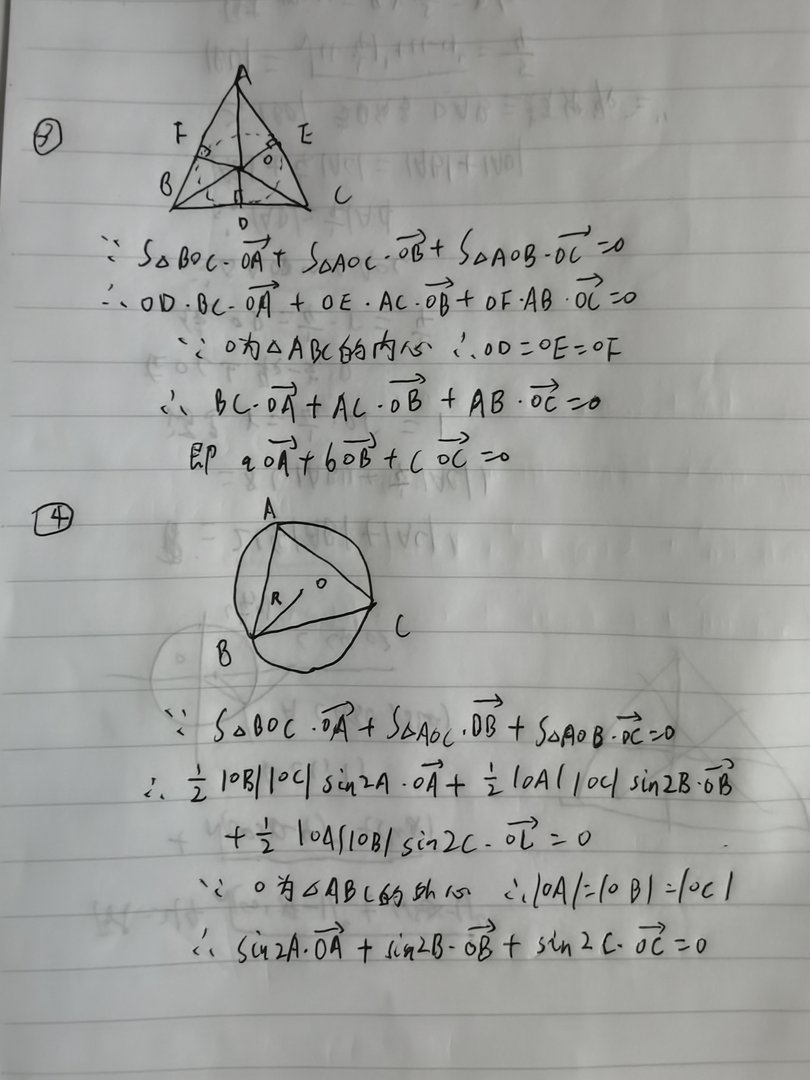 ③
A
F
E
O
B
C
D
∵ S△BOC·OA→ + S△AOC·OB→ + S△AOB·OC→ =0
∴ OD·BC·OA→ + OE·AC·OB→ + OF·AB·OC→ =0
∵ O为△ABC的内心 ∴OD=OE=OF
∴ BC·OA→ + AC·OB→ + AB·OC→ =0
即 aOA→ + bOB→ + cOC→ =0
④
A
O
R
C
B
∵ S△BOC·OA→ + S△AOC·OB→ + S△AOB·OC→ =0
∴ 1/2 |OB||OC| sin2A·OA→ + 1/2 |OA||OC| sin2B·OB→
+ 1/2 |OA||OB| sin2C·OC→ = 0
∵ O为△ABC的外心 ∴|OA|=|OB|=|OC|
∴ sin2A·OA→ + sin2B·OB→ + sin2C·OC→ =0